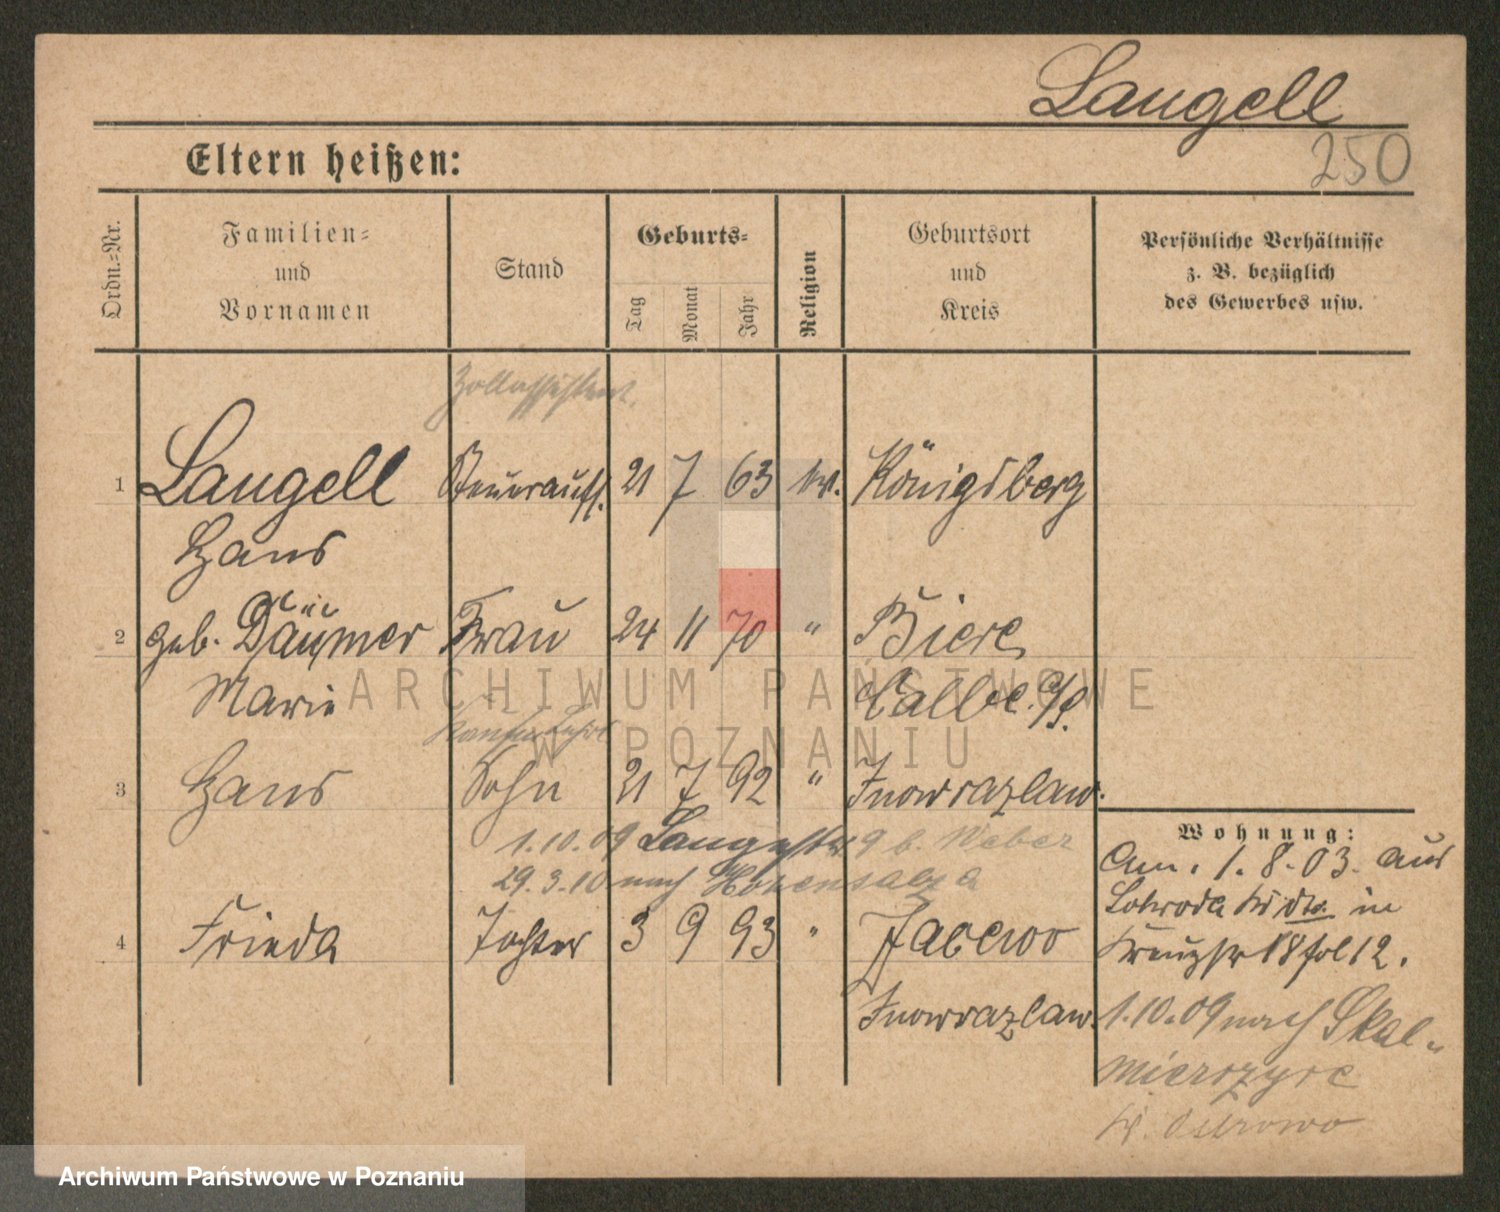 Langell
250
Eltern heißen:
Ordn.=Nr.
Familien=
und
Vornamen
Stand
Geburts=
Tag
Monat
Jahr
Religion
Geburtsort
und
Kreis
Persönliche Verhältnisse
z. B. bezüglich
des Gewerbes usw.
Zollassistent.
1 Langell Steuerauff. 21 7 63 ev. Königsberg
Hans
2 geb. Däumer Frau 24 11 70 " Biere
Marie Calbe a/S.
3 Hans Sohn 21 7 92 " Inowrazlaw.
1.10.09 Langestr 9 b. Weber
29.3.10 nach Hohensalza
4 Frieda Tochter 3 9 93 "
Inowrazlaw.
Wohnung:
Am. 1.8.03. aus
in
Kreuzstr 18
1.10.09 nach Skal-
mierzyce
Kr. Ostrowo
ARCHIWUM PAŃSTWOWE
W POZNANIU
Archiwum Państwowe w Poznaniu